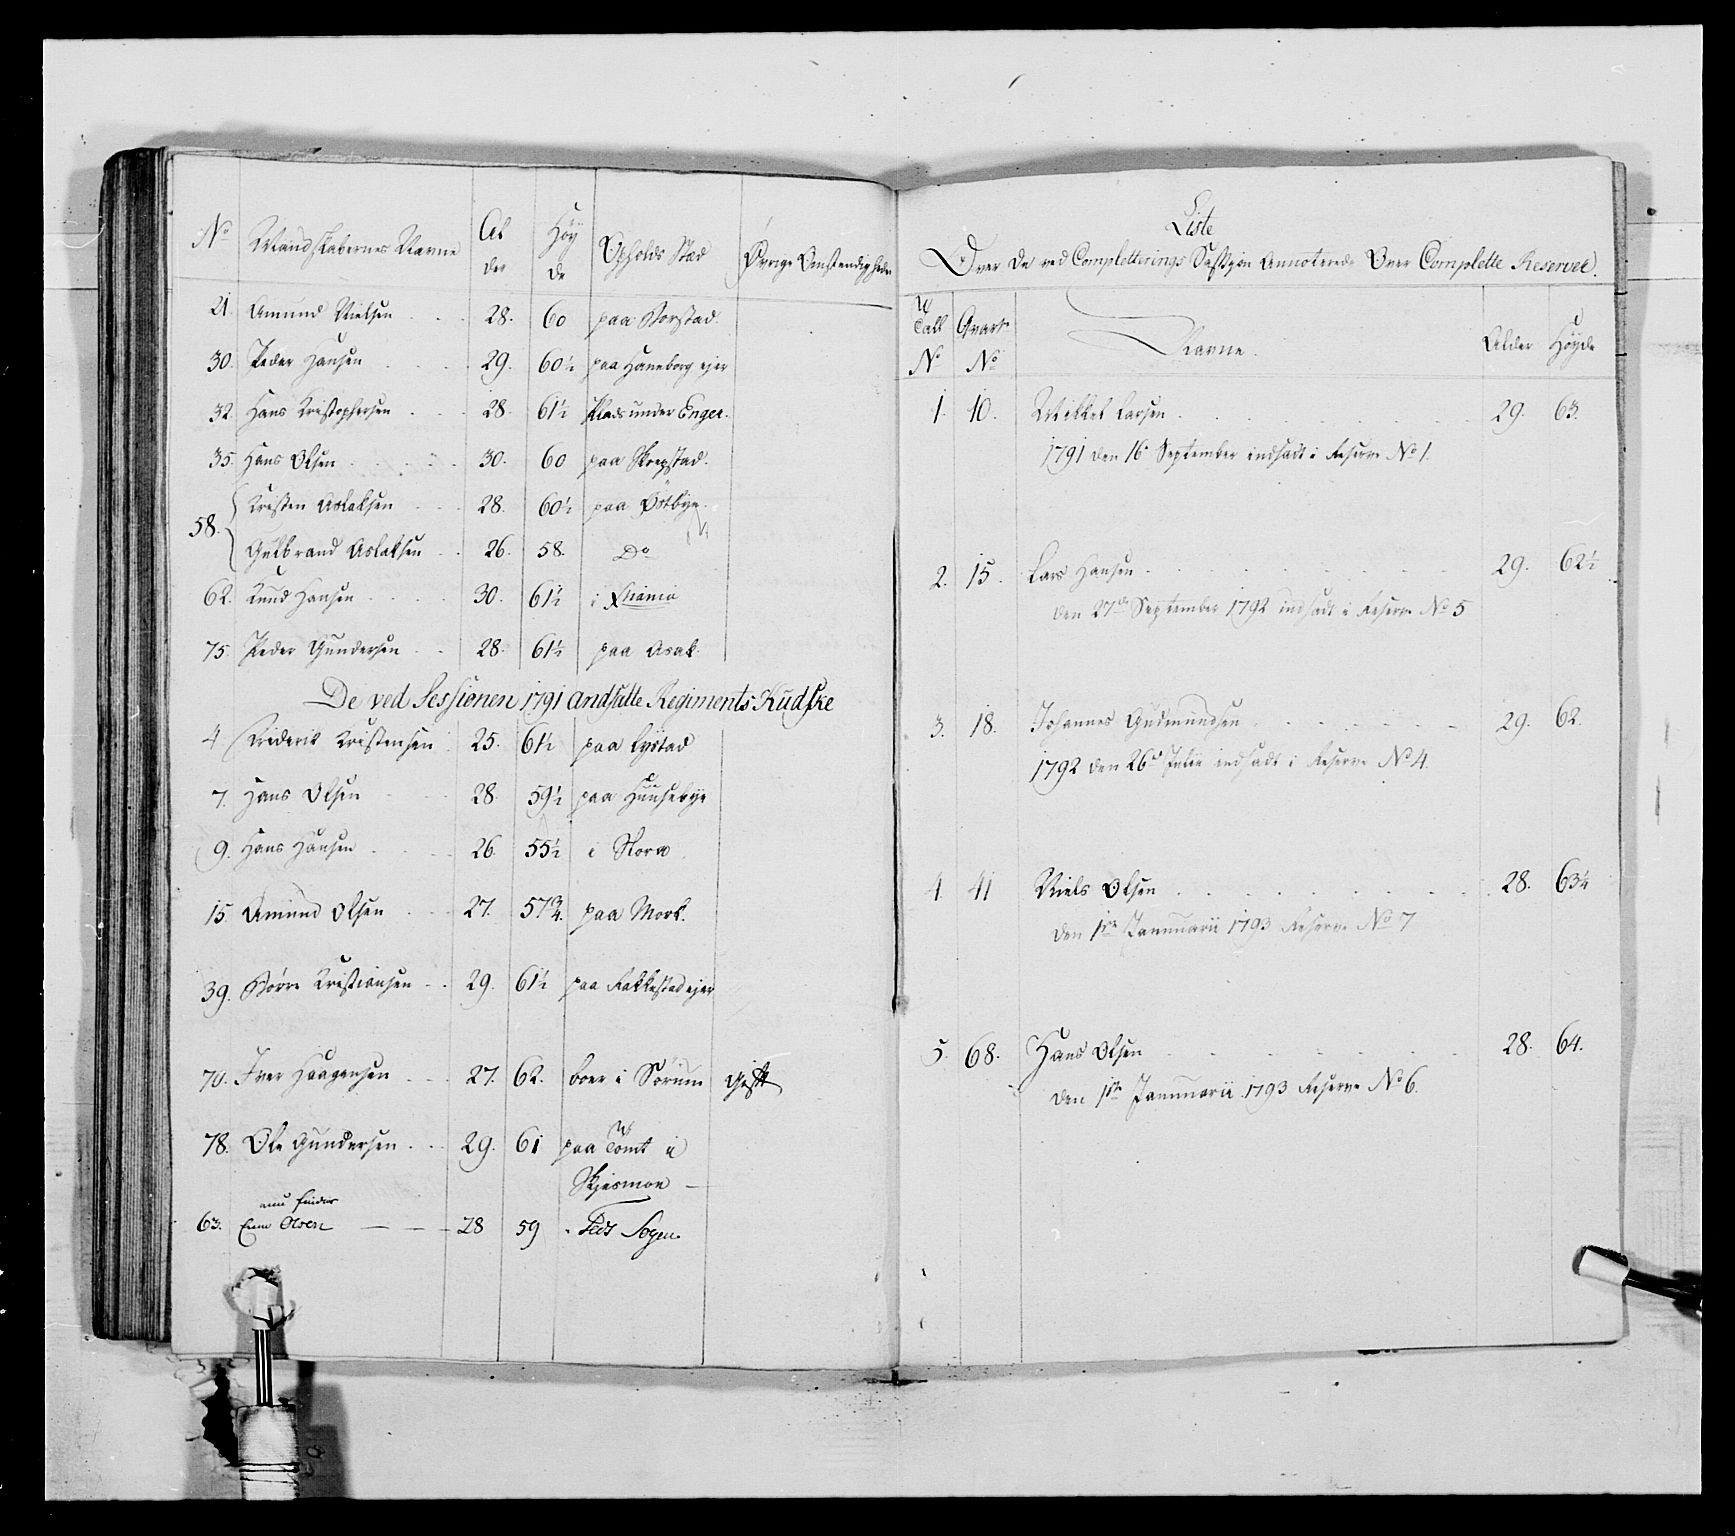 No Mandskabernes Navne Al der Høy de Opholds Stæd Øvrige Omstendigheder
21. Amund Nielsen 28. 60 paa Borstad.
30. Peder Hansen 29. 60½ paa Haneborg ejer
32. Hans Kristophersen 28. 61½ Plads under Enger.
35. Hans Olsen 30. 60 paa
58. Kristen Aslaksen 28. 60½ paa Østbye.
Gulbrand Aslaksen 26. 58. Do
62. Knud Hansen 30. 61½ i Xstiania
75. Peder Gundersen 28. 61½ paa Asak.
De ved Sessionen 1791 andsatte Regiments Kudske
4 Friderik Kristensen 25. 61½ paa
7. Hans Olsen 28. 59½ paa Huusebye
9. Hans Hansen 26. 55½ i
15. Amund Olsen 27. 57¾. paa Mork.
39. Børre Kristiansen 29. 61½ paa Fakkestad ejer
70. Iver Haagensen 27. 62. boer i Sørum Gift
78. Ole Gundersen 29. 61 paa Tomt i
Skjesmoe
63. Olsen 28 59 Sogen.
Liste
Over De ved Completterings Sessjon Annoterede Over Complette Reserver.
Tall No Qvart No Navne. Alder Høyde
1. 10. Mikkel Larsen 29. 63.
1791 den 16 September indsadt i Reserve No 1.
2. 15. Lars Hansen 29. 62½
den 27de September 1792 indsadt i Reserve No 5
3. 18. Johannes Gudmundsen 29. 62.
1792 den 26de Julii indsadt i Reserve No 4.
4 41 Niels Olsen 28. 63¼
den 1ste Januarii 1793 Reserve No 7
5. 68. Hans Olsen 28. 64.
den 1ste Januarii 1793 Reserve No 6.